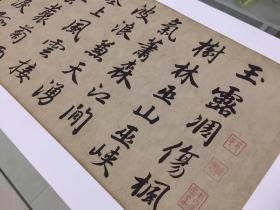 玉露凋傷楓
樹林巫山巫峽
氣蕭森江間
波浪兼天湧
上風雲接
叢菊